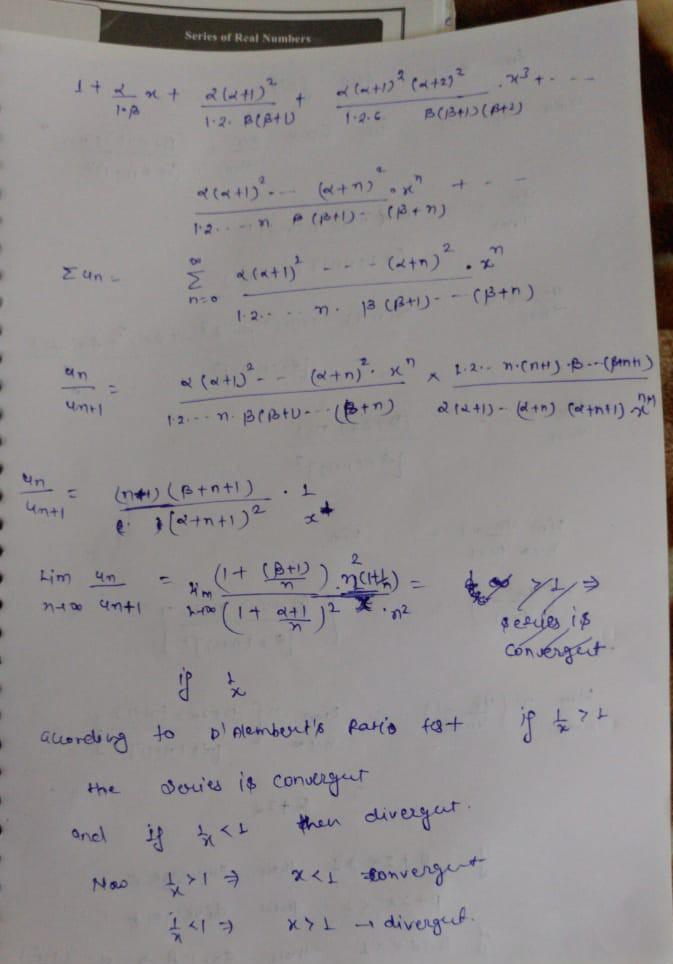 Series of Real Numbers
1 + α/1·β x + α(α+1)²/1·2·β(β+1) + α(α+1)²(α+2)²/1·2·6 β(β+1)(β+2) · x³ + - - -
α(α+1)² - - - (α+n)² · xⁿ/1·2 - - - n β(β+1) - - (β+n) + - -
Σun = ∞ Σ n=0 α(α+1)² - - - (α+n)² · xⁿ/1·2 - - - n · β(β+1) - - (β+n)
un/un+1 = α(α+1)² - - (α+n)² · xⁿ/1·2 - - - n · β(β+1) - - (β+n) × 1·2 - - n·(n+1)·β - - (β+n+1)/α(α+1) - (α+n)(α+n+1)·xⁿ⁺¹
un/un+1 = (n+1)(β+n+1)/(α+n+1)² · 1/x
Lim n→∞ un/un+1 = lim n→∞ (1 + (β+1)/n) · n²(1+1/n)/(1 + α+1/n)² x · n² = ∞ > 1 ⇒
series is
convergent.
if 1/x
according to D'Alembert's Ratio test if 1/x > 1
the series is convergent
and if 1/x < 1 then divergent.
Now 1/x > 1 ⇒ x < 1 convergent
1/x < 1 ⇒ x > 1 → divergent.